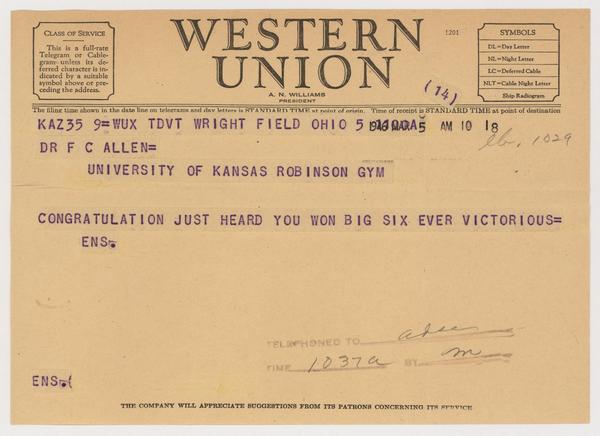 CLASS OF SERVICE
This is a full-rate
Telegram or Cable-
gram unless its de-
ferred character is in-
dicated by a suitable
symbol above or pre-
ceding the address.
WESTERN
UNION
A. N. WILLIAMS
PRESIDENT
1201
(14)
SYMBOLS
DL=Day Letter
NL=Night Letter
LC=Deferred Cable
NLT=Cable Night Letter
Ship Radiogram
The filing time shown in the date line on telegrams and day letters is STANDARD TIME at point of origin. Time of receipt is STANDARD TIME at point of destination
KAZ35 9=WUX TDVT WRIGHT FIELD OHIO 5 MAR 5 AM 10 18
1029
DR F C ALLEN=
UNIVERSITY OF KANSAS ROBINSON GYM
CONGRATULATION JUST HEARD YOU WON BIG SIX EVER VICTORIOUS=
ENS.
TELEPHONED TO
TIME 1037a BY m
ENS.(
THE COMPANY WILL APPRECIATE SUGGESTIONS FROM ITS PATRONS CONCERNING ITS SERVICE